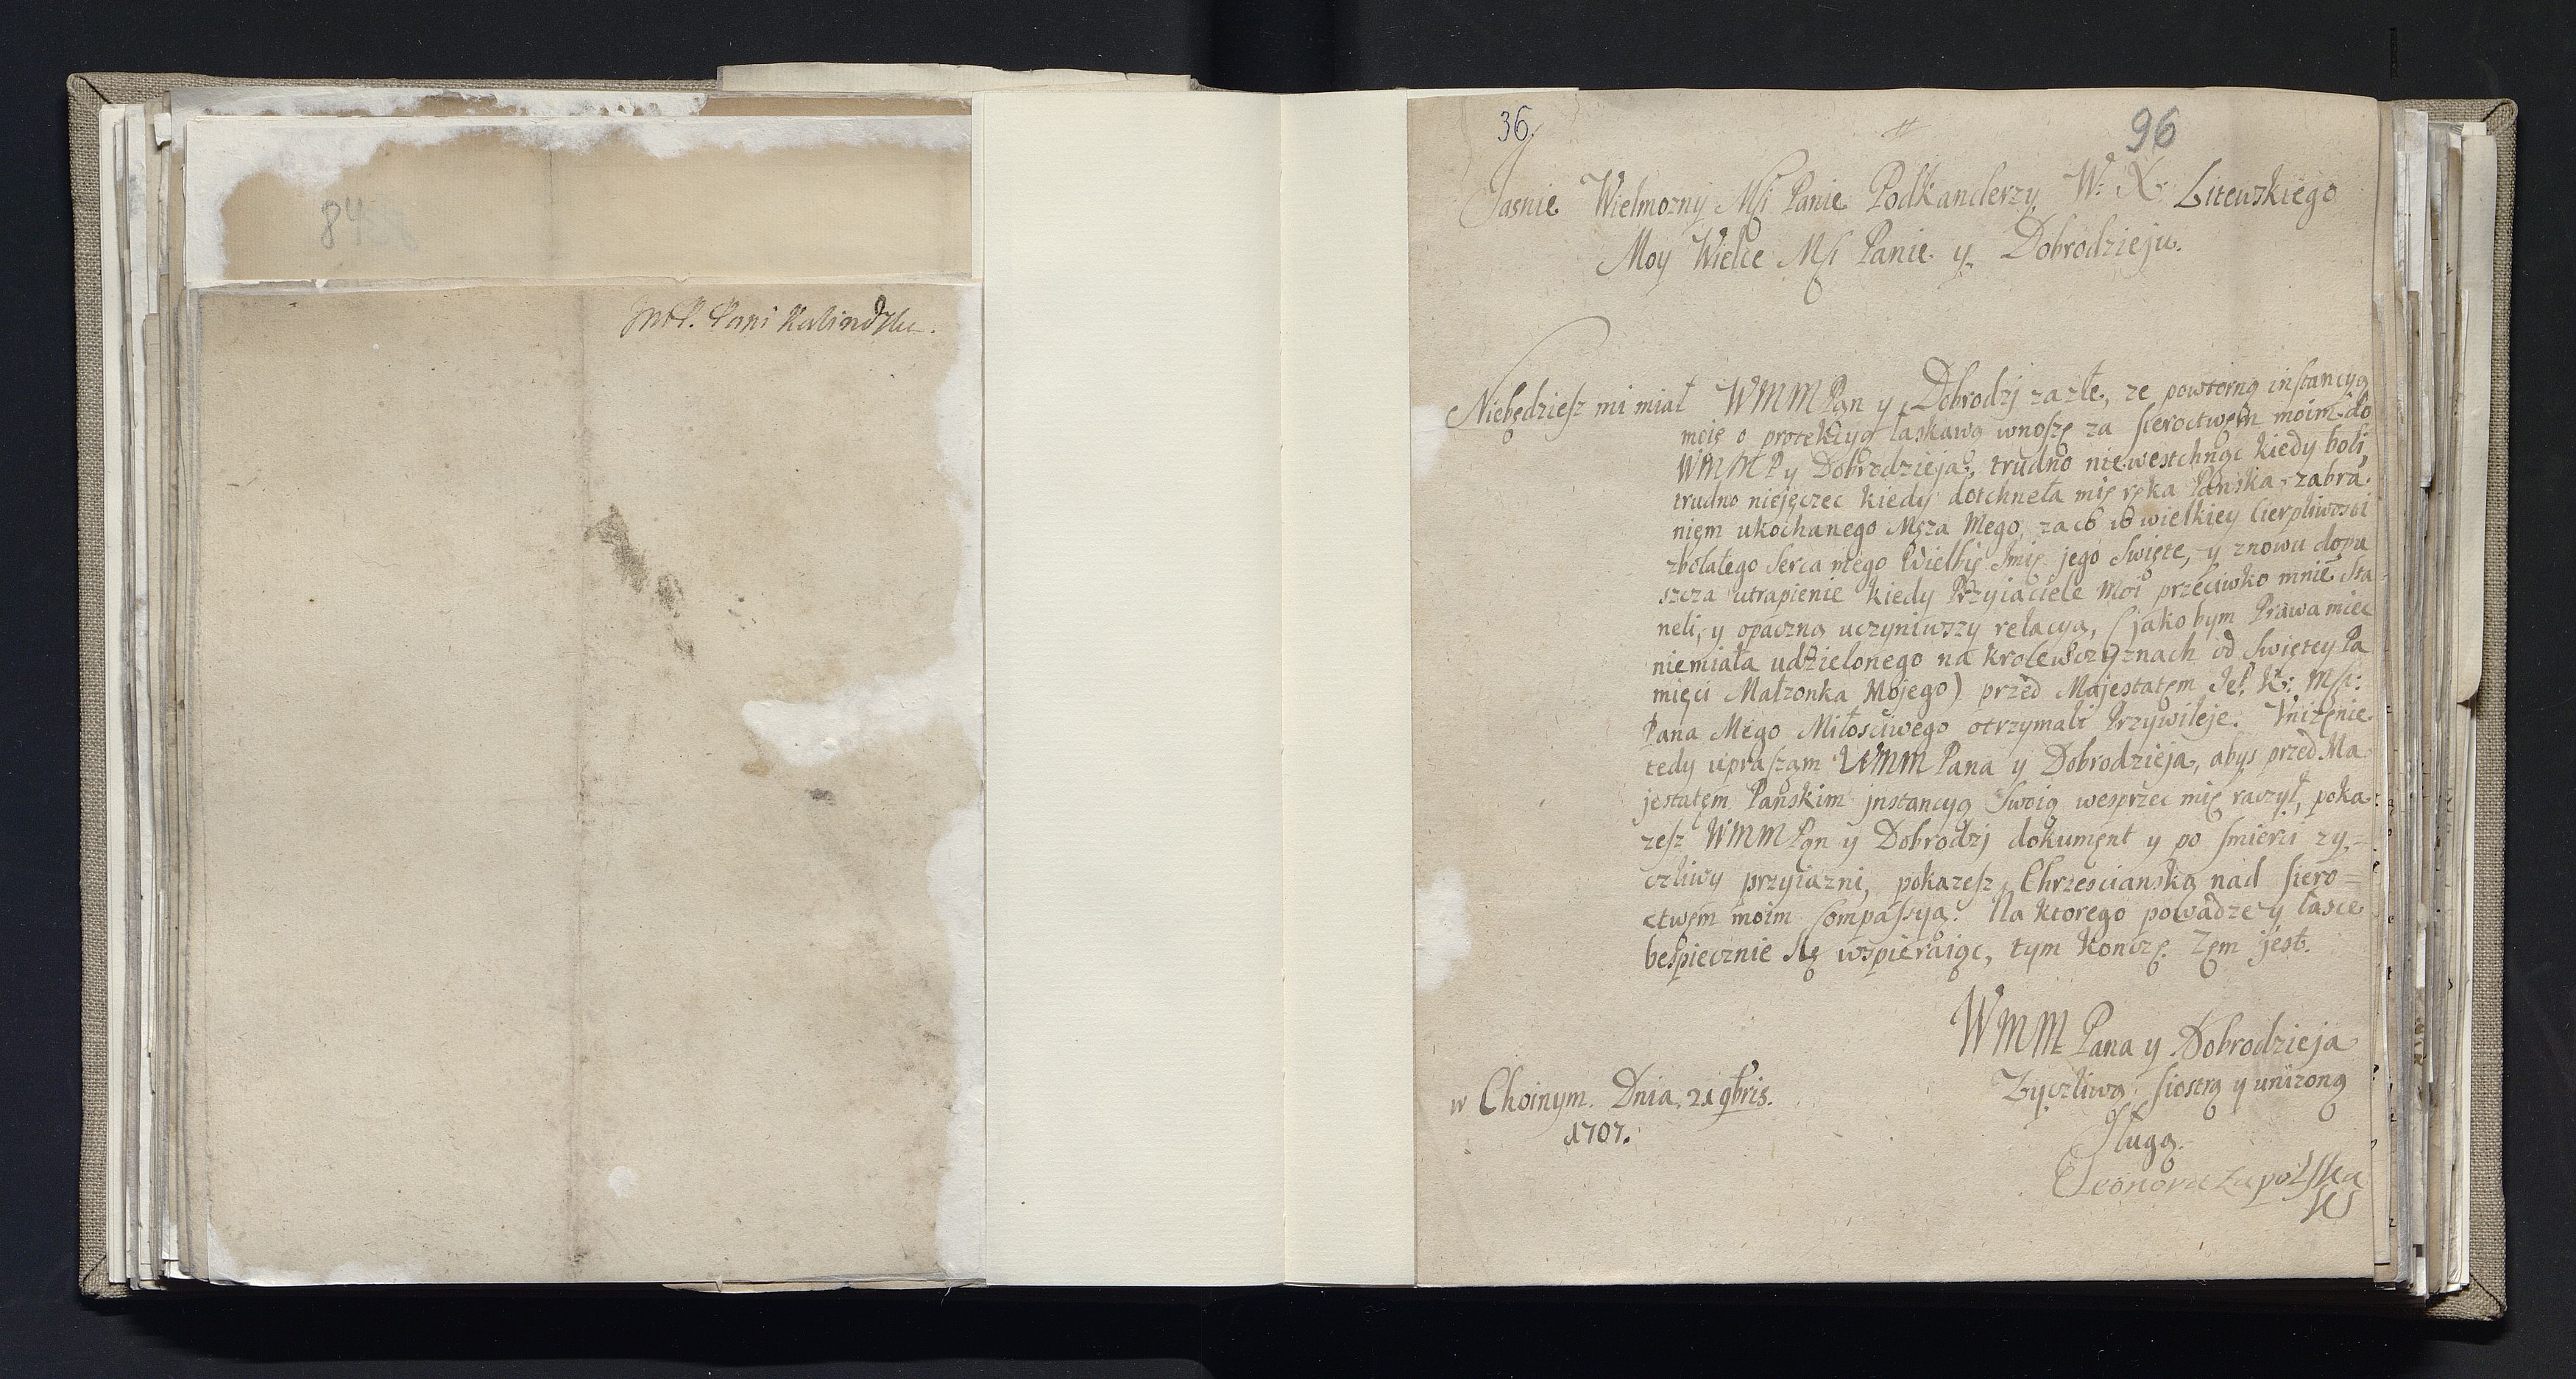 84
JMP. Pani
36.
96
Jasnie Wielmozny Msi Panie Podkanclerzy W: X: Litewskiego
Moy Wielce Msi Panie y Dobrodzieju.
Niebędziesz mi miał WMMPan y Dobrodzj zazłe, ze powtorną instancyą
moię o protekcyą łaskawą wnoszę za sieroctwem moim do
WMMP y Dobrodzieja, trudno niewestchnąc kiedy boli,
trudno niejęczec kiedy dotchneła mię ręka Panska, zabra
niem ukochanego Męza Mego, za co w wielkiey Cierpliwosci
zbolałego Serca mego Wielbię Jmię jego Swięte, y znowu dopu
szcza utrapienie kiedy Przyiaciele Moi przeciwko mnie Sta
neli, y opaczną uczyniwszy relacyą, (jakobym Prawa miec
niemiała udzielonego na krolewszczyznach od Swiętey Pa
mięci Małzonka Mojego) przed Majestatem Je: K: Msi:
Pana Mego Miłosciwego otrzymali Przywileje. Vnizenie
tedy upraszam WMM Pana y Dobrodzieja, abys przed Ma
jestatem Panskim jnstancyą Swoią wesprzec mię raczył, poka
zesz WMMPan y Dobrodzj dokument y po smierci zy=
czliwy przyiazni, pokazesz Chrzescianską nad siero=
ctwem moim compassyą. Na ktorego powadze y łasce
bespiecznie się wspieraiąc, tym koncze. Zem jest.
WMM Pana y Dobrodzieja
Zyczliwą siostrą y unizoną
Sługą.
w Choinym. Dnia. 21 9bris.
1707.